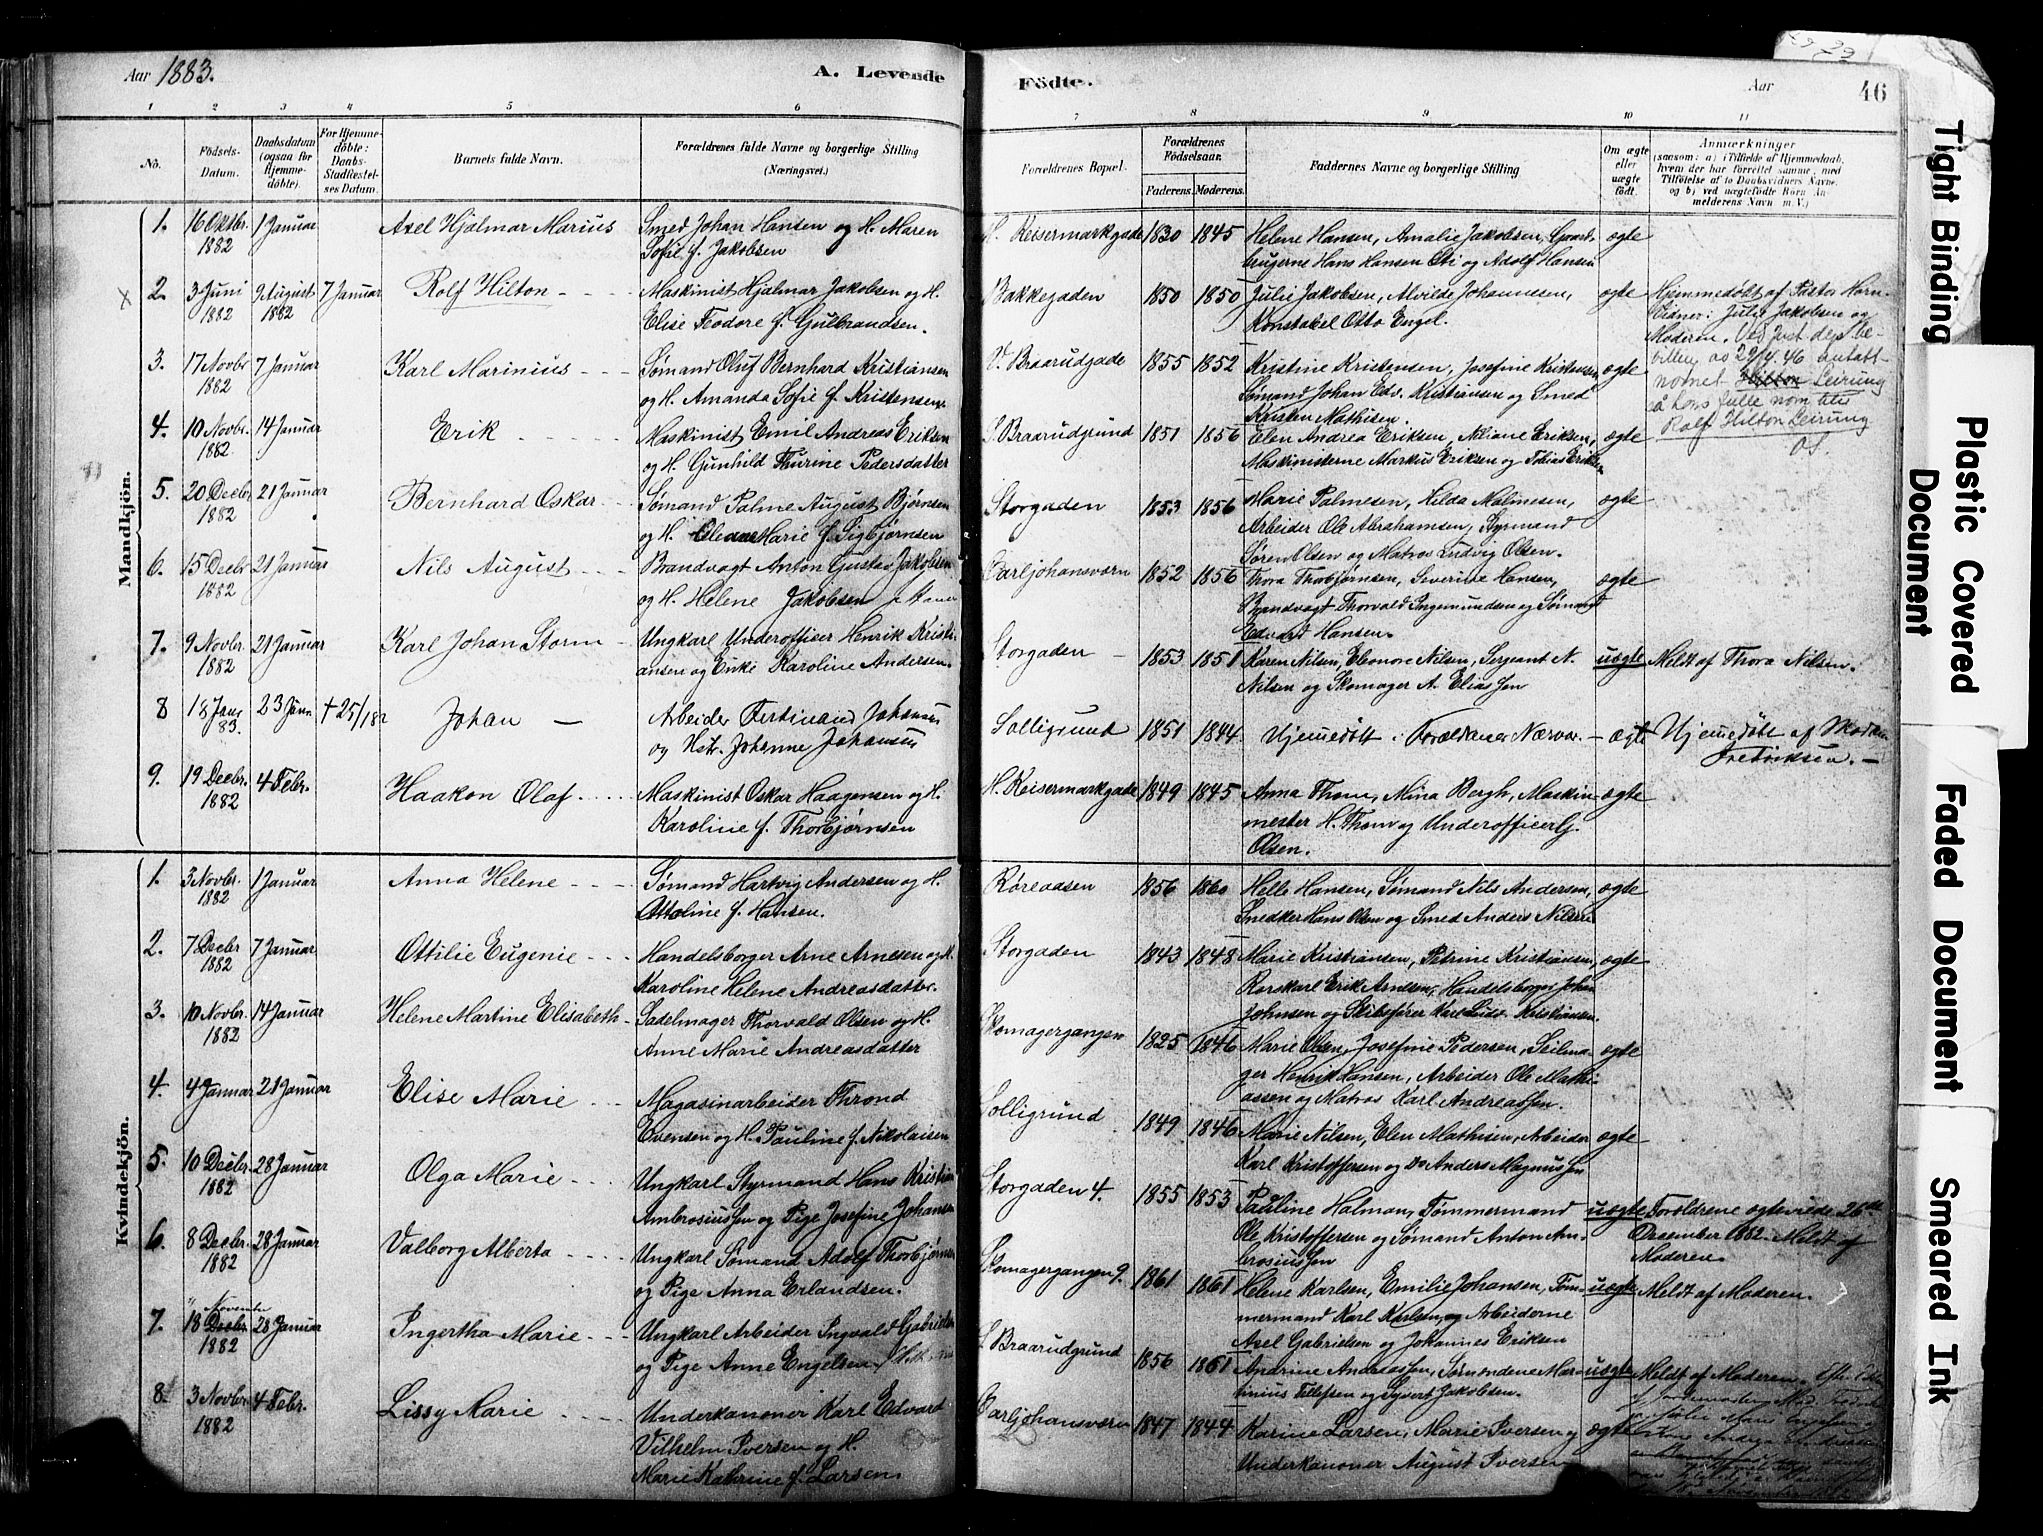 Aar 1883.
A. Levende
Födte.
Aar
46
1 2 3 4 5 6
7 8 9 10 11
No.
Födsels-
Datum.
Daabsdatum
(ogsaa for
Hjemme-
döbte).
For Hjemme-
döbte:
Daabs-
Stadfæstel-
ses Datum.
Barnets fulde Navn.
Forældrenes fulde Navne og borgerlige Stilling
(Næringsvei.)
Forældrenes Bopæl.
Forældrenes
Födselsaar.
Faderens. Moderens.
Faddernes Navne og borgerlige Stilling
Om ægte
eller
uægte
födt.
Anmærkninger
(saasom: a) i Tilfælde af Hjemmedaab,
hvem der har forrettet samme, med
Tilföielse af to Daabsvidners Navne,
og b) ved uægtefödte Börn An-
melderens Navn m. V.)
Mandkjön.
1. 16 Oktbr. 1 Januar Axel Hjalmar Marius Smed Johan Hansen og H. Maren
1882 Sofie f. Jakobsen
H. Keisermarkgade 1830 1845 Helene Hansen, Amalie Jakobsen, Gaard-
brugerne Hans Hansen og Adolf Hansen
ægte
2. 3 Juni 9 August 7 Januar Rolf Hilton Maskinist Hjalmar Jakobsen og H.
1882 1882 Elise Teodore f. Gulbrandsen.
Bakkegaden 1850 1850 Julie Jakobsen, Alvilde Johannesen,
Konstabel Otto Engel.
ægte Hjemmedøbt af Pastor Horn.
Vidner: Julie Jakobsen og
Moderen. Ved just. dep. be-
villing av 29/4. 46 antatt
navnet Hilton Leirung
så hans fulle navn blir
Rolf Hilton Leirung
3. 17 Novbr. 7 Januar Karl Marinius Sømand Oluf Bernhard Kristiansen
1882 og H. Amanda Sofie f. Kristensen.
V. Braarudgade 1855 1852 Kristine Kristensen, Josefine Kristensen,
Sømand Johan Edv. Kristiansen og Smed
Kristen Mathisen.
ægte
4. 10 Novbr. 14 Januar Erik Maskinist Emil Andreas Eriksen
1882 og H. Gunhild Thurine Pedersdatter
Braarudgrund 1851 1856 Elen Andrea Eriksen, Eriksen,
Maskinisterne Markus Eriksen og Tobias Eriksen
ægte
5. 20 Decbr. 21 Januar Bernhard Oskar Sømand Palme August Bjørnsen
1882 og H. Marie f. Sigbjørnsen
Storgaden 1853 1856 Marie Palmesen, Hilda Malmesen,
Arbeider Ole Abrahamsen, Styrmand
Søren Olsen og Matros Ludvig Olsen.
ægte
6. 15 Decbr. 21 Januar Nils August Brandvagt Anton Gustav Jakobsen
1882 og H. Helene Jakobsen
Carljohansværn 1852 1856 Thora Thorbjørnsen, Severine Hansen,
Brandvagt Thorvald Ingemundsen og Sømand
Edvard Hansen.
ægte
7. 9 Novbr. 21 Januar Karl Johan Storm Ungkarl Underofficer Henrik Kristi-
1882 ansen og Enke Karoline Andersen
Storgaden 1853 1851 Karen Nilsen, Eleonore Nilsen, Sergeant N.
Nilsen og Skomager A. Eliassen
uægte Meldt af Thora Nilsen.
8 18 Jan. 23 Jan. Johan Arbeider Ferdinand Johansen
83. og Hstr. Johanne Johansen
Solligrund 1851 1844 Hjemmedøbt i Forældrenes Nærvær. ægte Hjemmedøbt af
Fredriksen.
9. 19 Decbr. 4 Febr. Haakon Olaf Maskinist Oskar Haagensen og H.
1882 Karoline f. Thorbjørnsen
H. Keisermarkgade 1849 1845 Anna Thom, Mina Bergh, Maskin-
mester H. Thom og Underofficer
Olsen.
ægte
Kvindekjön.
1. 3 Novbr. 1 Januar Anna Helene Sømand Hartvig Andersen og H.
1882 Ottoline f. Hansen.
Røreaasen 1856 1860 Helle Hansen, Sømand Nils Andersen,
Snedker Hans Olsen og Smed Anders Nilsen
ægte
2. 7 Decbr 7 Januar Ottilie Eugenie Handelsborger Arne Arnesen og H.
1882 Karoline Helene Andreasdatter.
Storgaden 1843 1848 Marie Kristiansen, Petrine Kristiansen,
Rorskarl Erik Arnesen, Handelsborger Johan
Johnsen og Skibsfører Karl Ludv. Kristiansen.
ægte
3. 10 Novbr. 14 Januar Helene Martine Elisabeth Sadelmager Thorvald Olsen og H.
1882 Anne Marie Andreasdatter
Skomagergangen 1825 1846 Marie Olsen, Josefine Pedersen, Seilma-
ger Henrik Hansen, Arbeider Ole Mathi-
assen og Matros Karl Andreassen.
ægte
4. 4 Januar 21 Januar Elise Marie Magasinarbeider Thrond
Evensen og H. Pauline f. Nikolaisen
Solligrund 1849 1846 Marie Nilsen, Elen Mathisen, Arbeider
Karl Kristoffersen og Do Anders Magnussen
ægte
5. 10 Decbr. 28 Januar Olga Marie Ungkarl Styrmand Hans Kristian
1882 Ambrosiussen og Pige Josefine Johansen
Storgaden 4. 1855 1853 Pauline Halman, Tømmermand
Ole Kristoffersen og Sømand Anton Am-
brosiussen
uægte Forældrene ægteviede 26de
December 1882. Meldt af
Moderen.
6. 8 Decbr. 28 Januar Valborg Alberta Ungkarl Sømand Adolf Thorbjørnsen
1882 og Pige Anna Erlandsen.
Skomagergangen 9. 1861 1861 Helene Karlsen, Emilie Johansen, Tøm-
mermand Karl Karlsen og Arbeiderne
Axel Gabrielsen og Johannes Eriksen
uægte Meldt af Moderen.
7. 18 Decbr. November 28 Januar Ingertha Marie Ungkarl Arbeider Ingvald Gabrielsen
1882 og Pige Anne Engelsen
Braarudgrund 1856 1861 Andrine Andreassen, Sømændene Mar-
tinius Tellefsen og Syvert Jakobsen.
uægte Meldt af Moderen.
8. 3 Novbr. 4 Febr. Lissy Marie Underkanoner Karl Edvard
1882 Vilhelm Iversen og H.
Marie Kathrine f. Larsen
Carljohansværn 1847 1844 Karine Larsen, Marie Iversen og
Underkanoner August Iversen
ægte
Tight Binding
Plastic Covered
Document
Faded Document
Smeared Ink